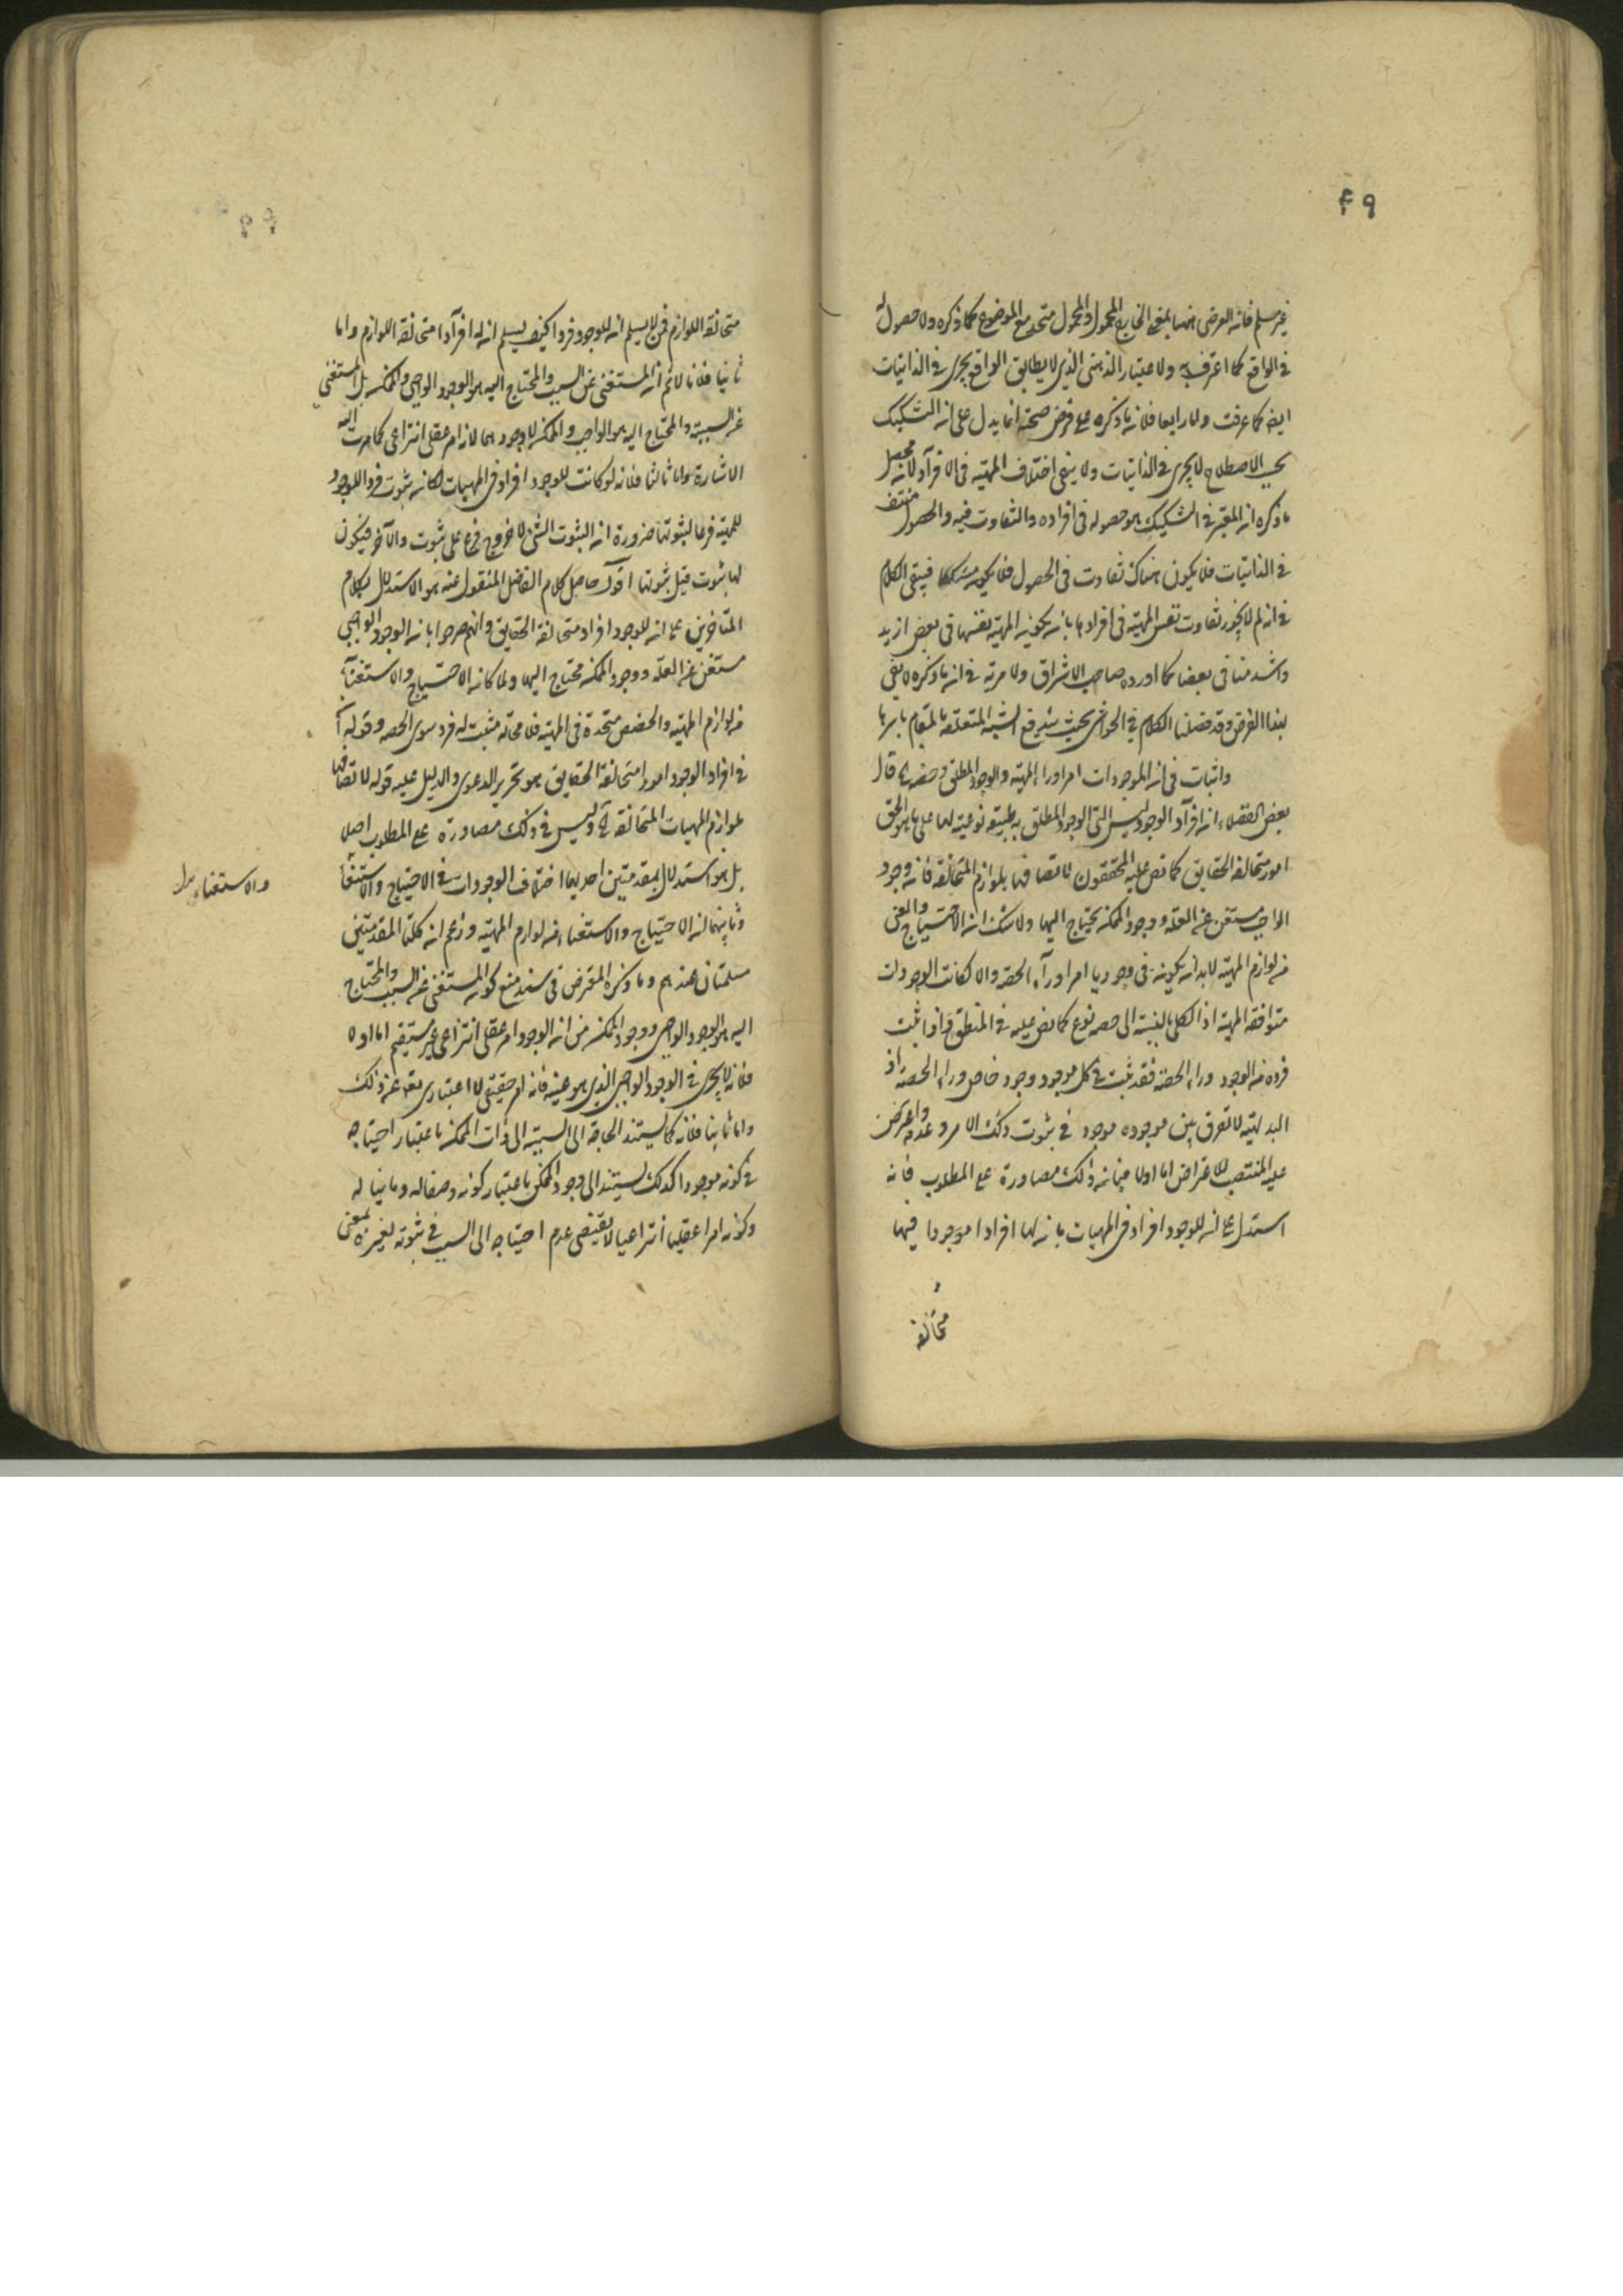 ٤٩
غير مسلم فان العرضى ههنا بمعنى الخارج المحمول والمحمول متحد مع الموضوع كما ذكره ولا حصول له
فى الواقع كما اعترف به والاعتبار الذهنى الذى لا يطابق الواقع يجرى فى الذاتيات
ايضا كما عرفت واما رابعا فلان ما ذكره على فرض صحته انما يدل على ان التشكيك
بحسب الاصطلاح لا يجرى فى الذاتيات ولا ينفى اختلاف المهية فى الافراد لانه محصل
ما ذكره ان المعتبر فى التشكيك هو حصوله فى افراده والتفاوت فيه والحصول منتف
فى الذاتيات فلا يكون هناك تفاوت فى الحصول فلا يكون مشككا فيبقى الكلام
فى انه لم لا يجوز تفاوت نفس المهية فى افرادها بان يكون المهية نفسها فى بعض ازيد
واشد منها فى بعضها كما اورده صاحب الاشراق ولا مرية فى ان ما ذكره لا يفى
بهذا الغرض وقد فصلنا الكلام فى الحواشى بحيث يندفع الشبه المتعلقة بالمقام باسرها
واثبات فى ان الموجودات امرا وراء المهية والوجود المطلق وحصته قال
بعض الفضلاء ان افراد الوجود ليس التى الوجود المطلق طبيعة نوعية لها على ما هو الحق
امور متخالفة الحقايق كما نص عليه المحققون لاتصافها بلوازم المتخالفة فان وجود
الواجب مستغن عن العلة ووجود الممكن يحتاج اليها ولا شك ان الاحتياج والغنى
من لوازم المهية لابد ان يكون فى وجودها امرا وراء الحصة والا لكانت الوجودات
متوافقة المهية اذ الكلى بالنسبة الى حصصه نوع كما نص عليه فى المنطق فاذا ثبت
فرد من الوجود وراء الحصة فقد ثبت فى كل موجود وجود خاص وراء الحصة اذ
البديهية لا تفرق بين موجود وموجود فى ثبوت ذلك الامر وعدمه واعترض
عليه المنتصب للاعتراض اما اولا فبان ذلك مصادرة على المطلوب فانه
استدل على ان للوجود افراد فى المهيات بان لها افرادا موجودا فيها
متخالفة
متخالفة اللوازم فمن لا يسلم ان للوجود فردا كيف يسلم ان له افرادا متخالفة اللوازم واما
ثانيا فلانا لا نم ان المستغنى عن السبب والمحتاج اليه هو الوجود الواجبى والممكن بل المستغنى
عن السبب والمحتاج اليه هو الواجب والممكن لا وجودهما لانه امر عقلى انتزاعى كما مرت اليه
الاشارة واما ثالثا فلانه لو كانت للوجود افراد فى المهيات لكان ثبوت فرد الوجود
للمهية فرعا لثبوتها ضرورة ان الثبوت الشئ للاخر فرع على ثبوت والاخر فيكون
لها ثبوت قبل ثبوتها اقول حاصل كلام الفاضل المنقول عنه هو الاستدلال بكلام
المتاخرين على ان للوجود افراد متخالفة الحقايق وانهم صرحوا بان الوجود الواجبى
مستغن عن العلة ووجود الممكن محتاج اليها ولما كان الاحتياج والاستغناء
من لوازم المهية والحصص متحدة فى المهية فلا محالة مثبت له فرد سوى الحصة وقوله ان
فى افراد الوجود امورا متخالفة الحقايق هو تحرير الدعوى والدليل عليه قوله لاتصافها
بلوازم المهيات المتخالفة الخ وليس فى ذلك مصادرة على المطلوب اصلا
بل هو استدلال بمقدمتين احديهما اختلاف الوجودات فى الاحتياج والاستغناء
وثانيهما ان الاحتياج والاستغناء من لوازم المهية وزعم ان كلتا المقدمتين
والاستغناء
مسلمتان عندهم وما ذكره المعترض فى سند منع كون المستغنى عن السبب والمحتاج
اليه هو الوجود الواجبى ووجود الممكن من ان الوجود امر عقلى انتزاعى غير مستقيم اما اولا
فلانه لا يجرى فى الوجود الواجبى الذى هو عينه فانه امر حقيقى لا اعتبارى تعالى عن ذلك
واما ثانيا فلانه كما يستند الحاجة الى السبب الى ذات الممكن باعتبار احتياجه
فى كونه موجودا كذلك يستند الى وجود الممكن باعتبار كونه وصفا له وثابتا له
وكونه امرا عقليا انتزاعيا لا يقتضى عدم احتياجه الى السبب فى ثبوته لغيره بمعنى